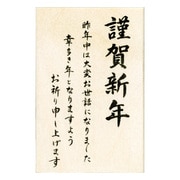 謹賀新年
昨年中は大変お世話になりました
幸多き年となりますよう
お祈り申し上げます